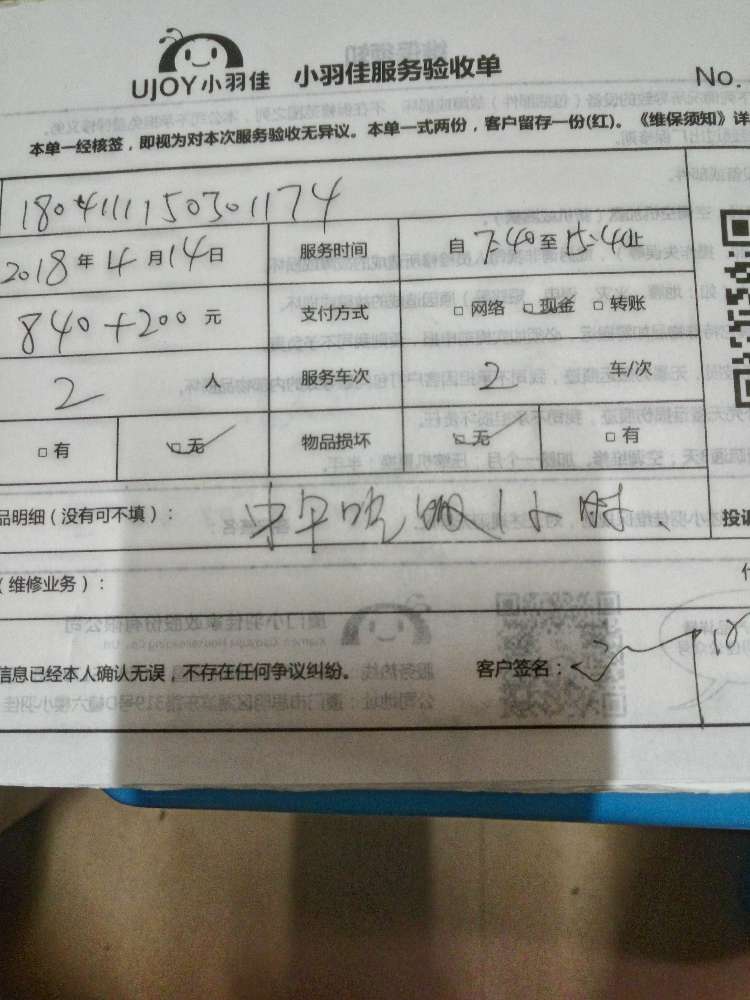 UJOY小羽佳 小羽佳服务验收单
No.
本单一经核签，即视为对本次服务验收无异议。本单一式两份，客户留存一份(红)。《维保须知》详
1804111150301174
2018年4月14日 服务时间 自7:40至15:40止
840+200元 支付方式 □网络 □现金 □转账
2人 服务车次 2车/次
□有 □无 物品损坏 □无 □有
品明细（没有可不填）： 小时 投诉
（维修业务）：
信息已经本人确认无误，不存在任何争议纠纷。 客户签名：